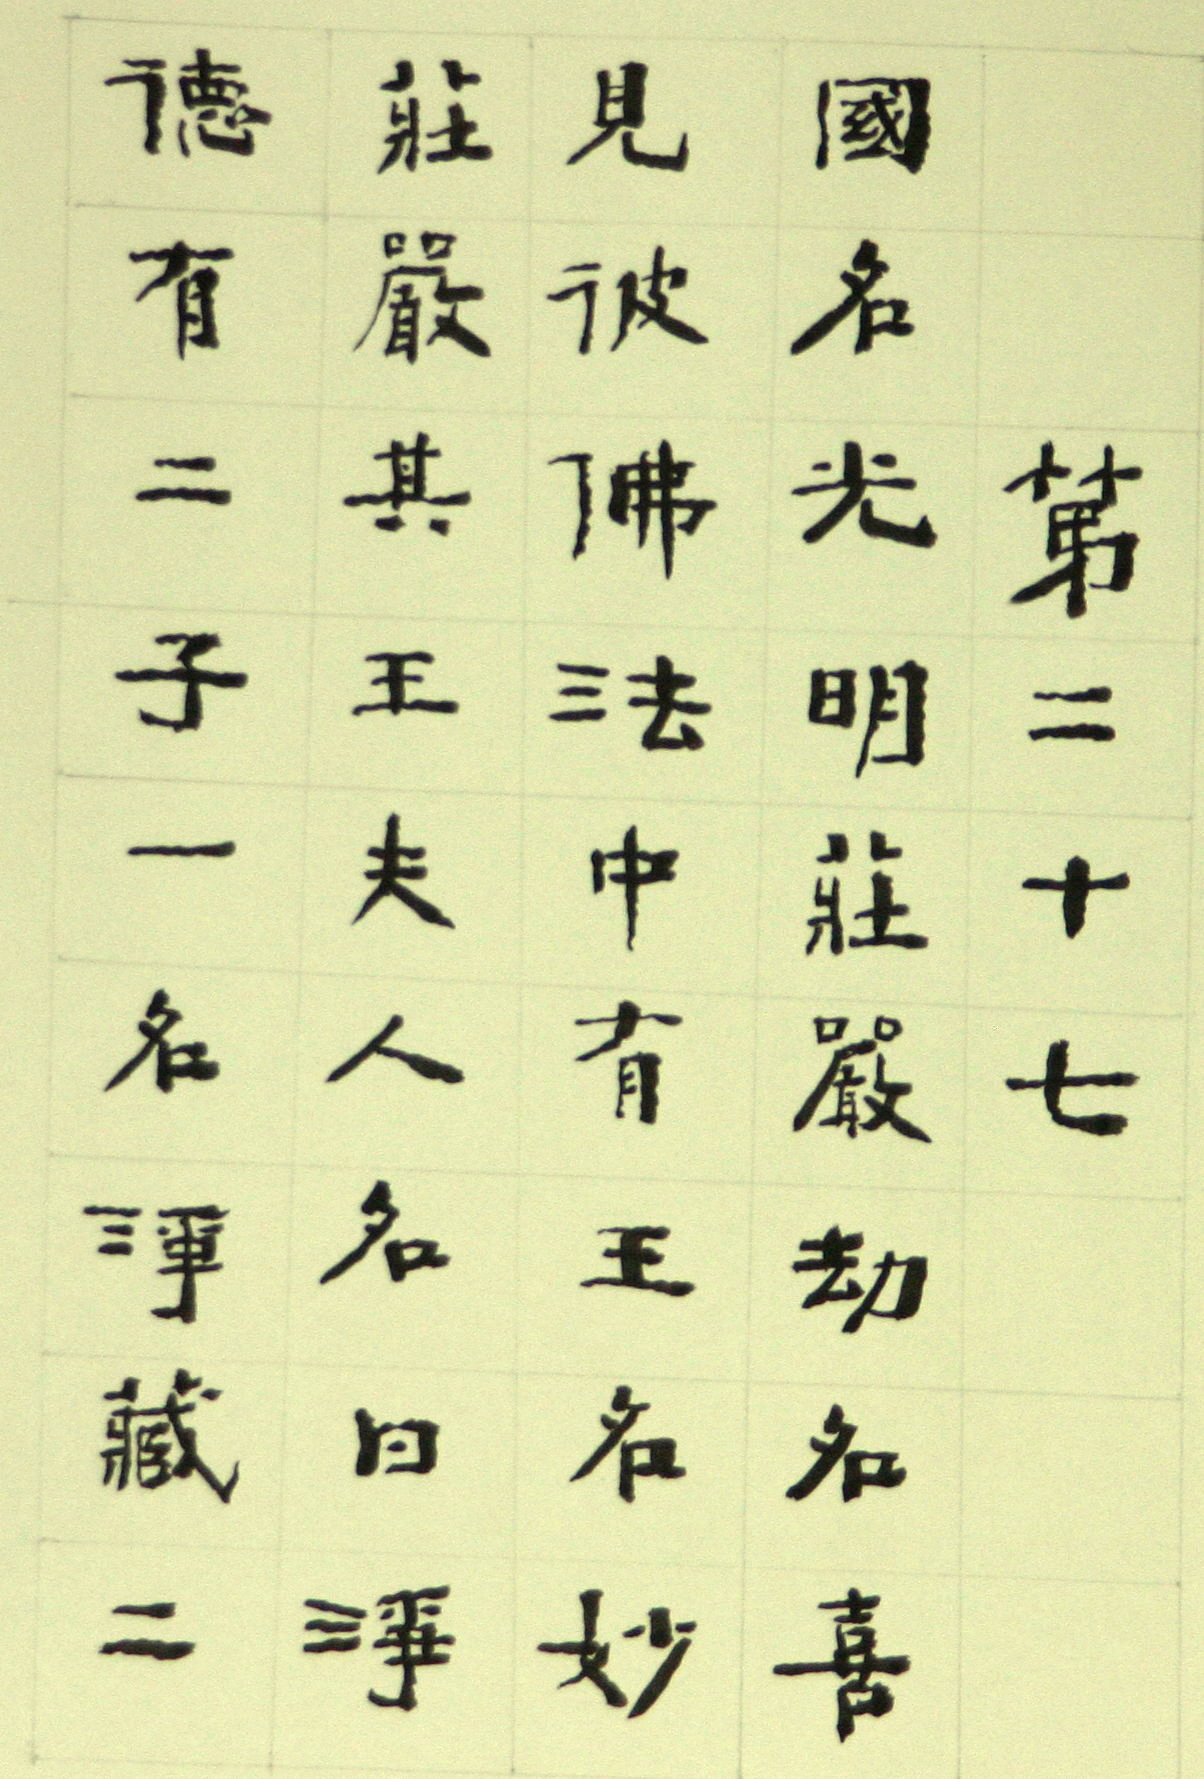 第二十七
國名光明莊嚴劫名喜
見彼佛法中有王名妙
莊嚴其王夫人名曰淨
德有二子一名淨藏二